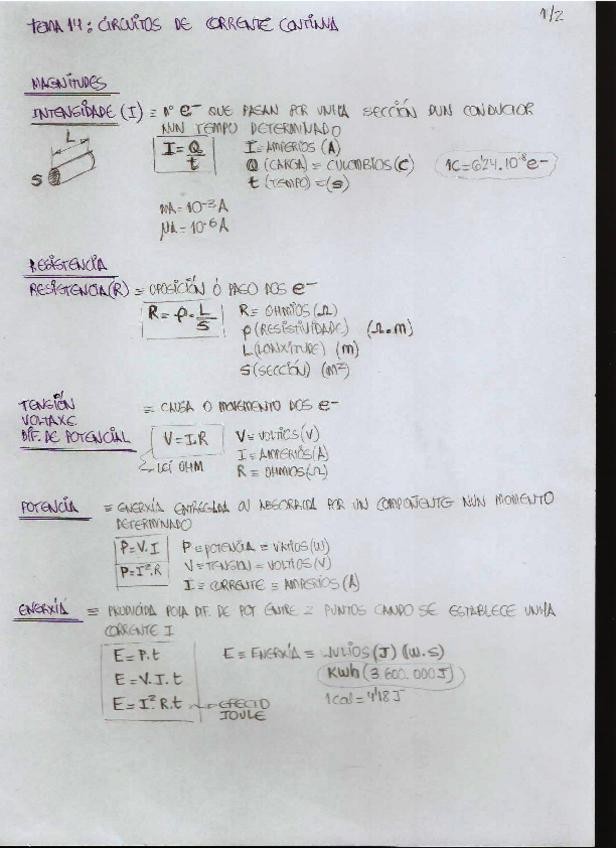 TEMA 14: CIRCUITOS DE CORRENTE CONTINUA
1/2
MAGNITUDES
INTENSIDADE (I) ≡ Nº e- QUE PASAN POR UNHA SECCIÓN DUN CONDUCTOR
NUN TEMPO DETERMINADO
L
S
I = Q/t
I ≡ AMPERIOS (A)
Q (CARGA) = CULOMBIOS (C)
1C = 6'24.10^18 e-
t (TEMPO) = (s)
mA = 10^-3 A
μA = 10^-6 A
RESISTENCIA
RESISTENCIA (R) ≡ OPOSICIÓN Ó PASO DOS e-
R = ρ · L/S
R ≡ OHMIOS (Ω)
ρ (RESISTIVIDADE) (Ω.m)
L (LONXITUDE) (m)
S (SECCIÓN) (m²)
TENSIÓN
VOLTAXE
DIF. DE POTENCIAL
≡ CAUSA O MOVEMENTO DOS e-
V = I.R
LEI OHM
V ≡ VOLTIOS (V)
I ≡ AMPERIOS (A)
R ≡ OHMIOS (Ω)
POTENCIA ≡ ENERXÍA ENTREGADA OU ABSORBIDA POR UN COMPOÑENTE NUN MOMENTO
DETERMINADO
P = V.I
P = I².R
P ≡ POTENCIA = VATIOS (W)
V ≡ TENSION = VOLTIOS (V)
I ≡ CORRENTE = AMPERIOS (A)
ENERXÍA ≡ PRODUCIDA POLA DIF. DE POT ENTRE 2 PUNTOS CANDO SE ESTABLECE UNHA
CORRENTE I
E = P.t
E = V.I.t
E = I².R.t
EFECTO
JOULE
E ≡ ENERXÍA ≡ JULIOS (J) (W.S)
KWh (3.600.000J)
1 cal = 4'18 J